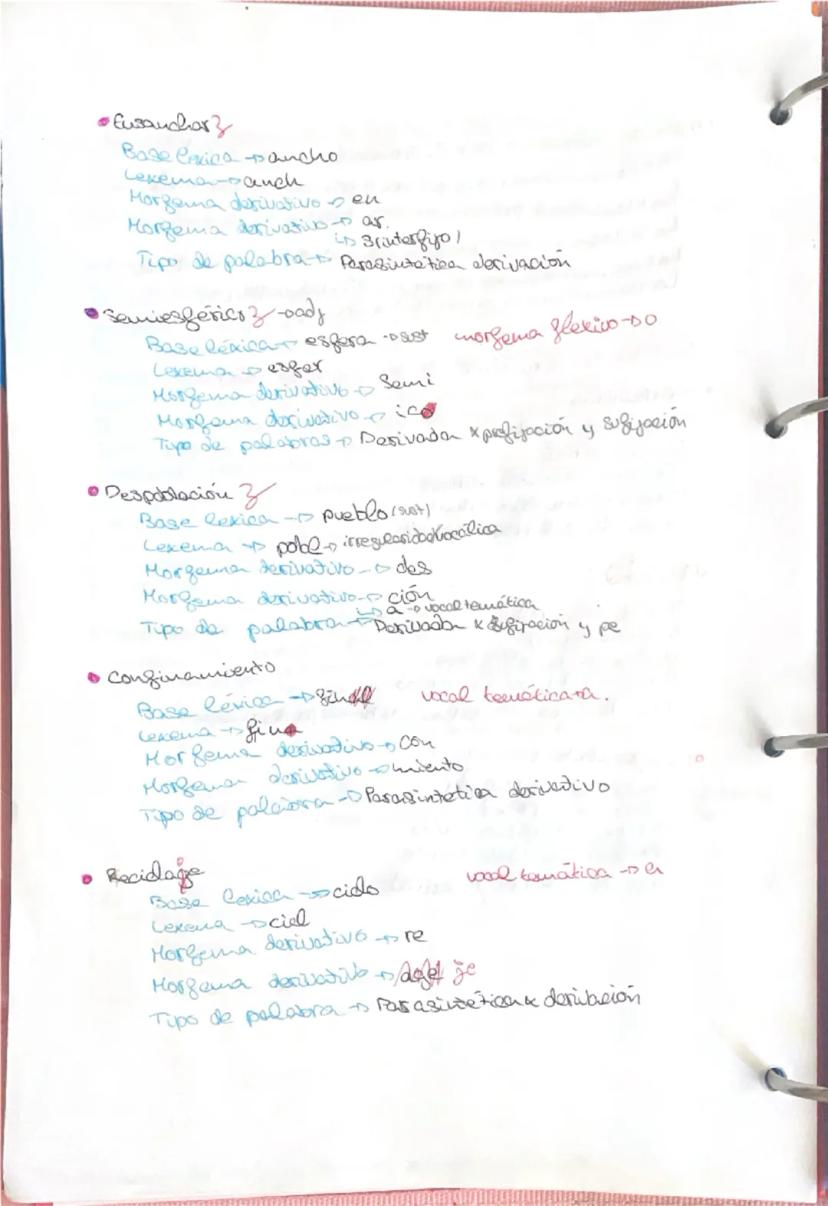 • Ensanchar
Base léxica → ancho
Lexema → anch
Morfema derivativo → en
Morfema derivativo → ar
↳ s (interfijo)
Tipo de palabra → Parasintética derivación
• Semiesférico → adj
Base léxica → esfera → sust morfema flexivo → o
Lexema → esfer
Morfema derivativo → Semi
Morfema derivativo → ico
Tipo de palabras → Derivada x prefijación y sufijación
• Despoblación
Base léxica → pueblo (sust)
Lexema → pobl → irregularidad vocálica
Morfema derivativo → des
Morfema derivativo → ción
↳ a → vocal temática
Tipo de palabra → Derivada x sufijación y pe
• Confinamiento
Base léxica → fin vocal temática → a.
Lexema → fin
Morfema derivativo → con
Morfema derivativo → miento
Tipo de palabra → Parasintética derivativo
• Reciclaje vocal temática → a
Base léxica → ciclo
Lexema → cicl
Morfema derivativo → re
Morfema derivativo → je
Tipo de palabra → Parasintética x derivación